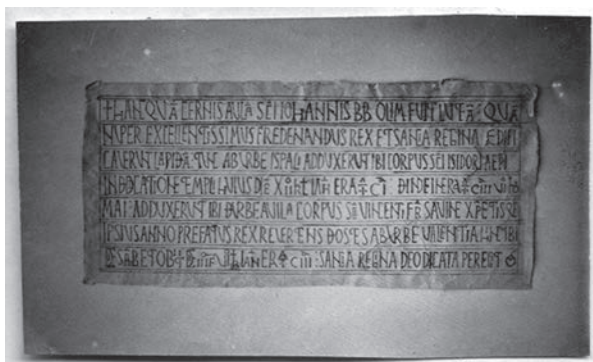 HANC QUĀ CERNIS AULĀ SCI IOHANNIS BB OLIM FUIT LUTEĀ: QUĀ
NUPER EXCELLENTISSIMUS FREDENANDUS REX ET SANCIA REGINA EDIFI
CAVERUNT LAPIDEĀ. TUNC AB URBE ISPALI ADDUXERUNT IBI CORPUS SCI ISIDORI EPI
IN DEDICATIONE TEMPLI HUIUS DIĒ XII KL IANR ERA CI DEINDE IN ERA CIII VI ID
MAI: ADDUXERUNT IBI D URBE AVILA CORPUS SCI VINCENTI FR SAVINE XPETISQ
IPSIUS ANNO PREFATUS REX REVERTENS D OSTES AB URBE VALENTIA HINC IBI
D SABB ET OBIIT D III F VI KL IANR ERA CIII: SANCIA REGINA DEO DICATA PEREGIT